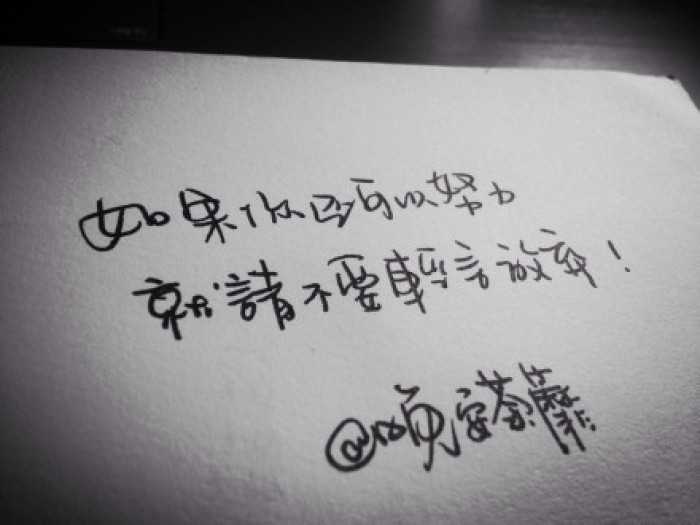 如果你还可以努力
就請不要輕言放弃!
安荼蘼